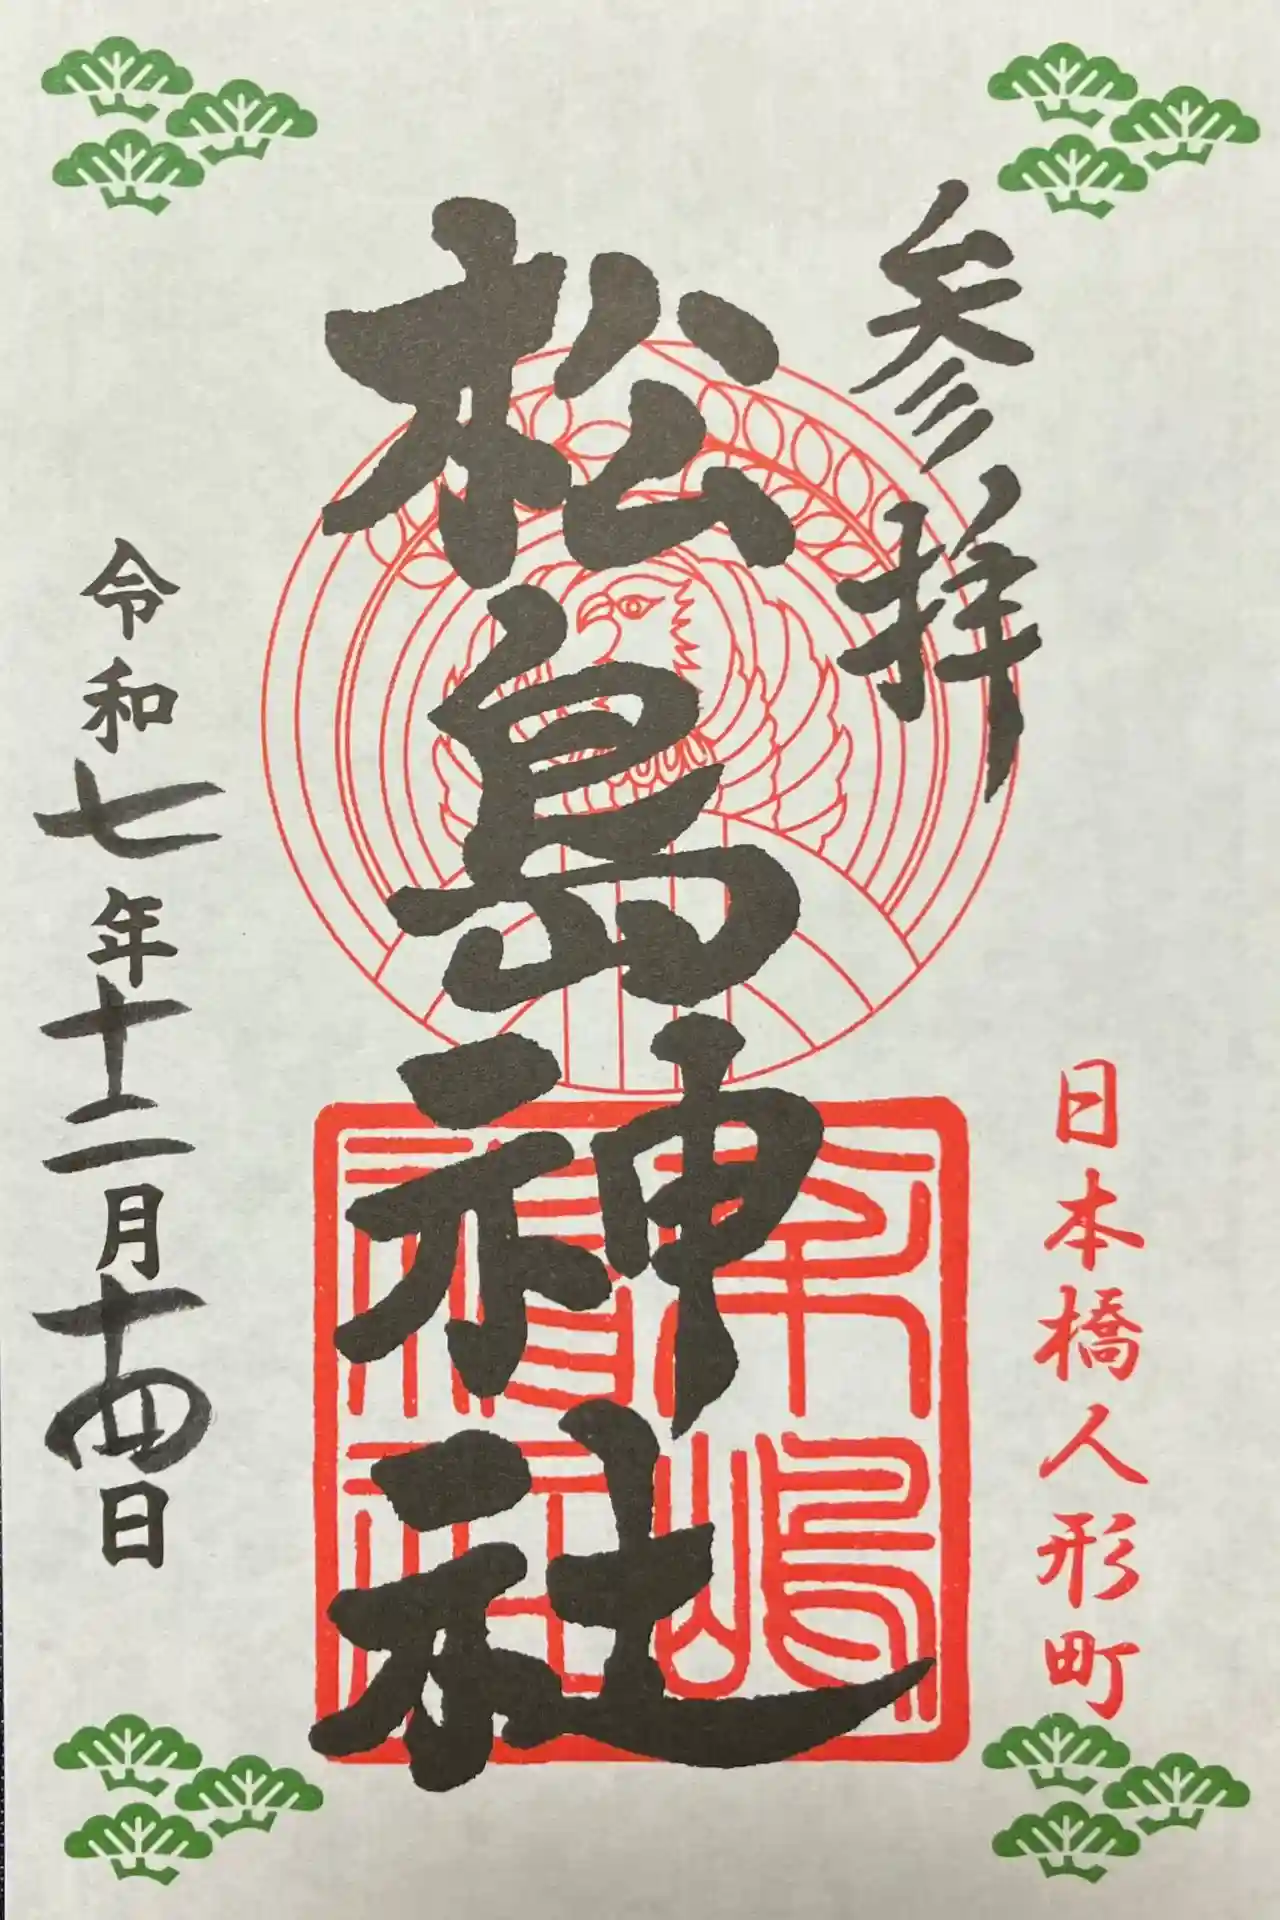 参拝
日本橋人形町
松島神社
松嶋神社
令和七年十二月十四日